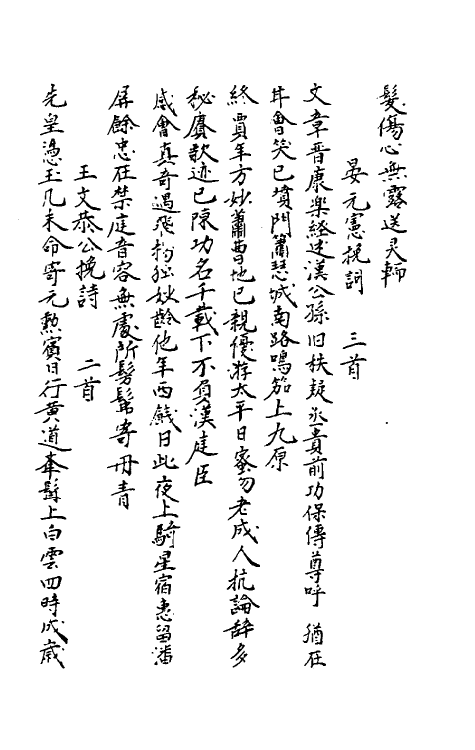 髮傷心無露送灵輀
晏元憲挽詞　三首
文章晋康樂經述漢公孫旧秩疑丞貴前功保傳尊呼 猶在
耳會笑已墳門簫瑟城南路鳴笳上九原
終賈年方妙蕭曹地已親優游太平日蜜勿老成人抗論辞多
秘賡歌迹已陳功名千載下不負漢庭臣
感會真奇遇飛 妙齡他年西餞日此夜上騎星宿惠留藩
屏餘忠在禁庭音容無處所髣髴寄丹青
王文恭公挽詩　二首
先皇憑玉几末命寄元勲賓日行黄道奉髯上白雲四時成歲